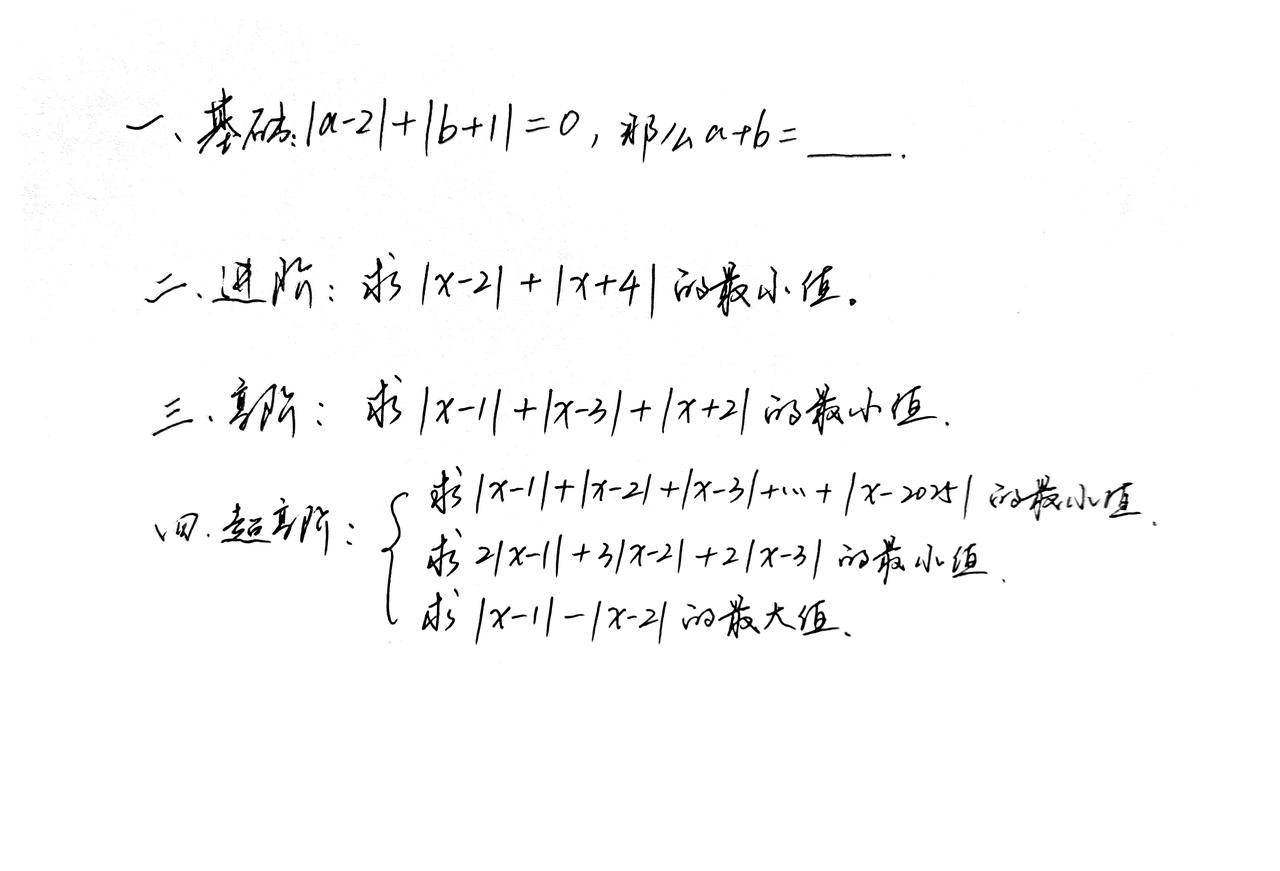 一、基础:|a-2|+|b+1|=0,那么a+b=____.
二、进阶:求|x-2|+|x+4|的最小值。
三、高阶:求|x-1|+|x-3|+|x+2|的最小值.
四.超高阶:{求|x-1|+|x-2|+|x-3|+…+|x-2025|的最小值.
求2|x-1|+3|x-2|+2|x-3|的最小值.
求|x-1|-|x-2|的最大值.